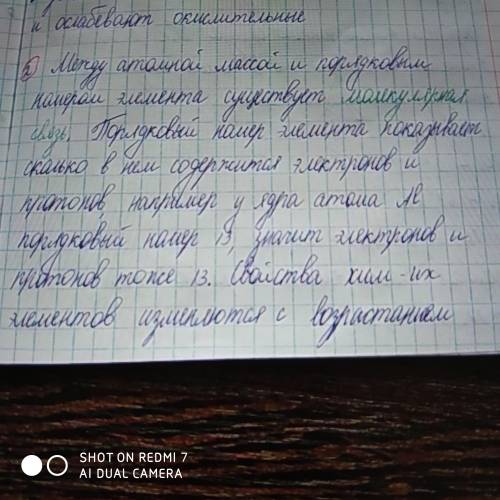 и ослабевают окислительные
2) Между атомной массой и порядковым
намером элемента существует молекулярная
связь. Порядковый намер элемента показывает
сколько в нем содержится электронов и
протонов, например у ядра атома Al
порядковый намер 13, значит электронов и
протонов тоже 13. Свойства хим-их
элементов изменяются с возрастанием
SHOT ON REDMI 7
AI DUAL CAMERA